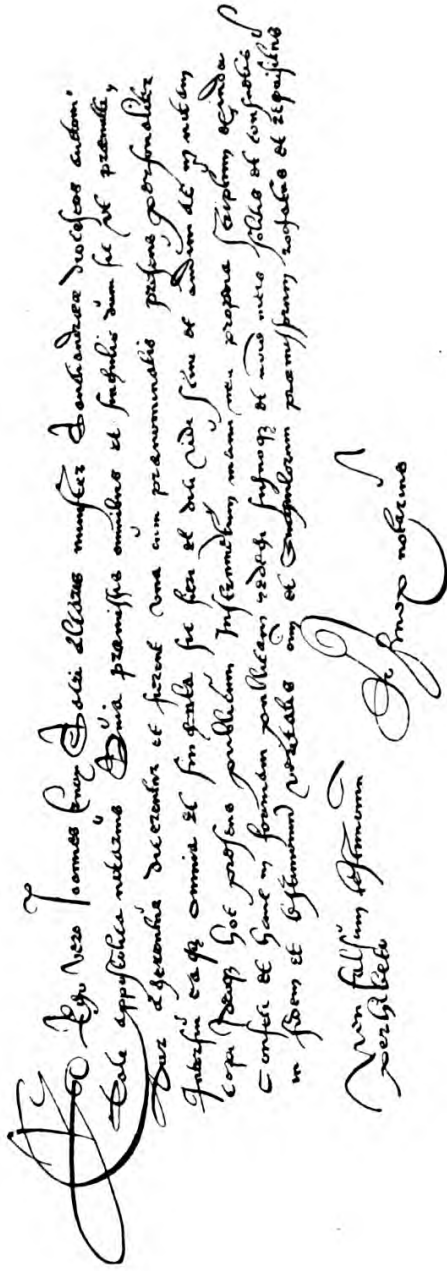 Ego vero Joannes Knox Sacri altaris minister Sanctiandree dioceseos auctori
tate appostolica notarius Quia premissis omnibus et singulis dum sic ut premitti
tur agerentur dicerentur et fierent una cum prenominatis presens personaliter
Interfui eaqz omnia et singula sic fieri et dici vidi scivi et audivi ac in notam
cepi Ideoqz hoc presens publicum Instrumentum manu mea propria scriptum exinde
confeci et hanc in formam publicam redegi signoqz et meis solitis et consuetis
in fidem et testimonium veritatis omn et singulorum premissorum rogatus et requisitus
Non falsum testimonium
perhibeto
Jo Knox notarius